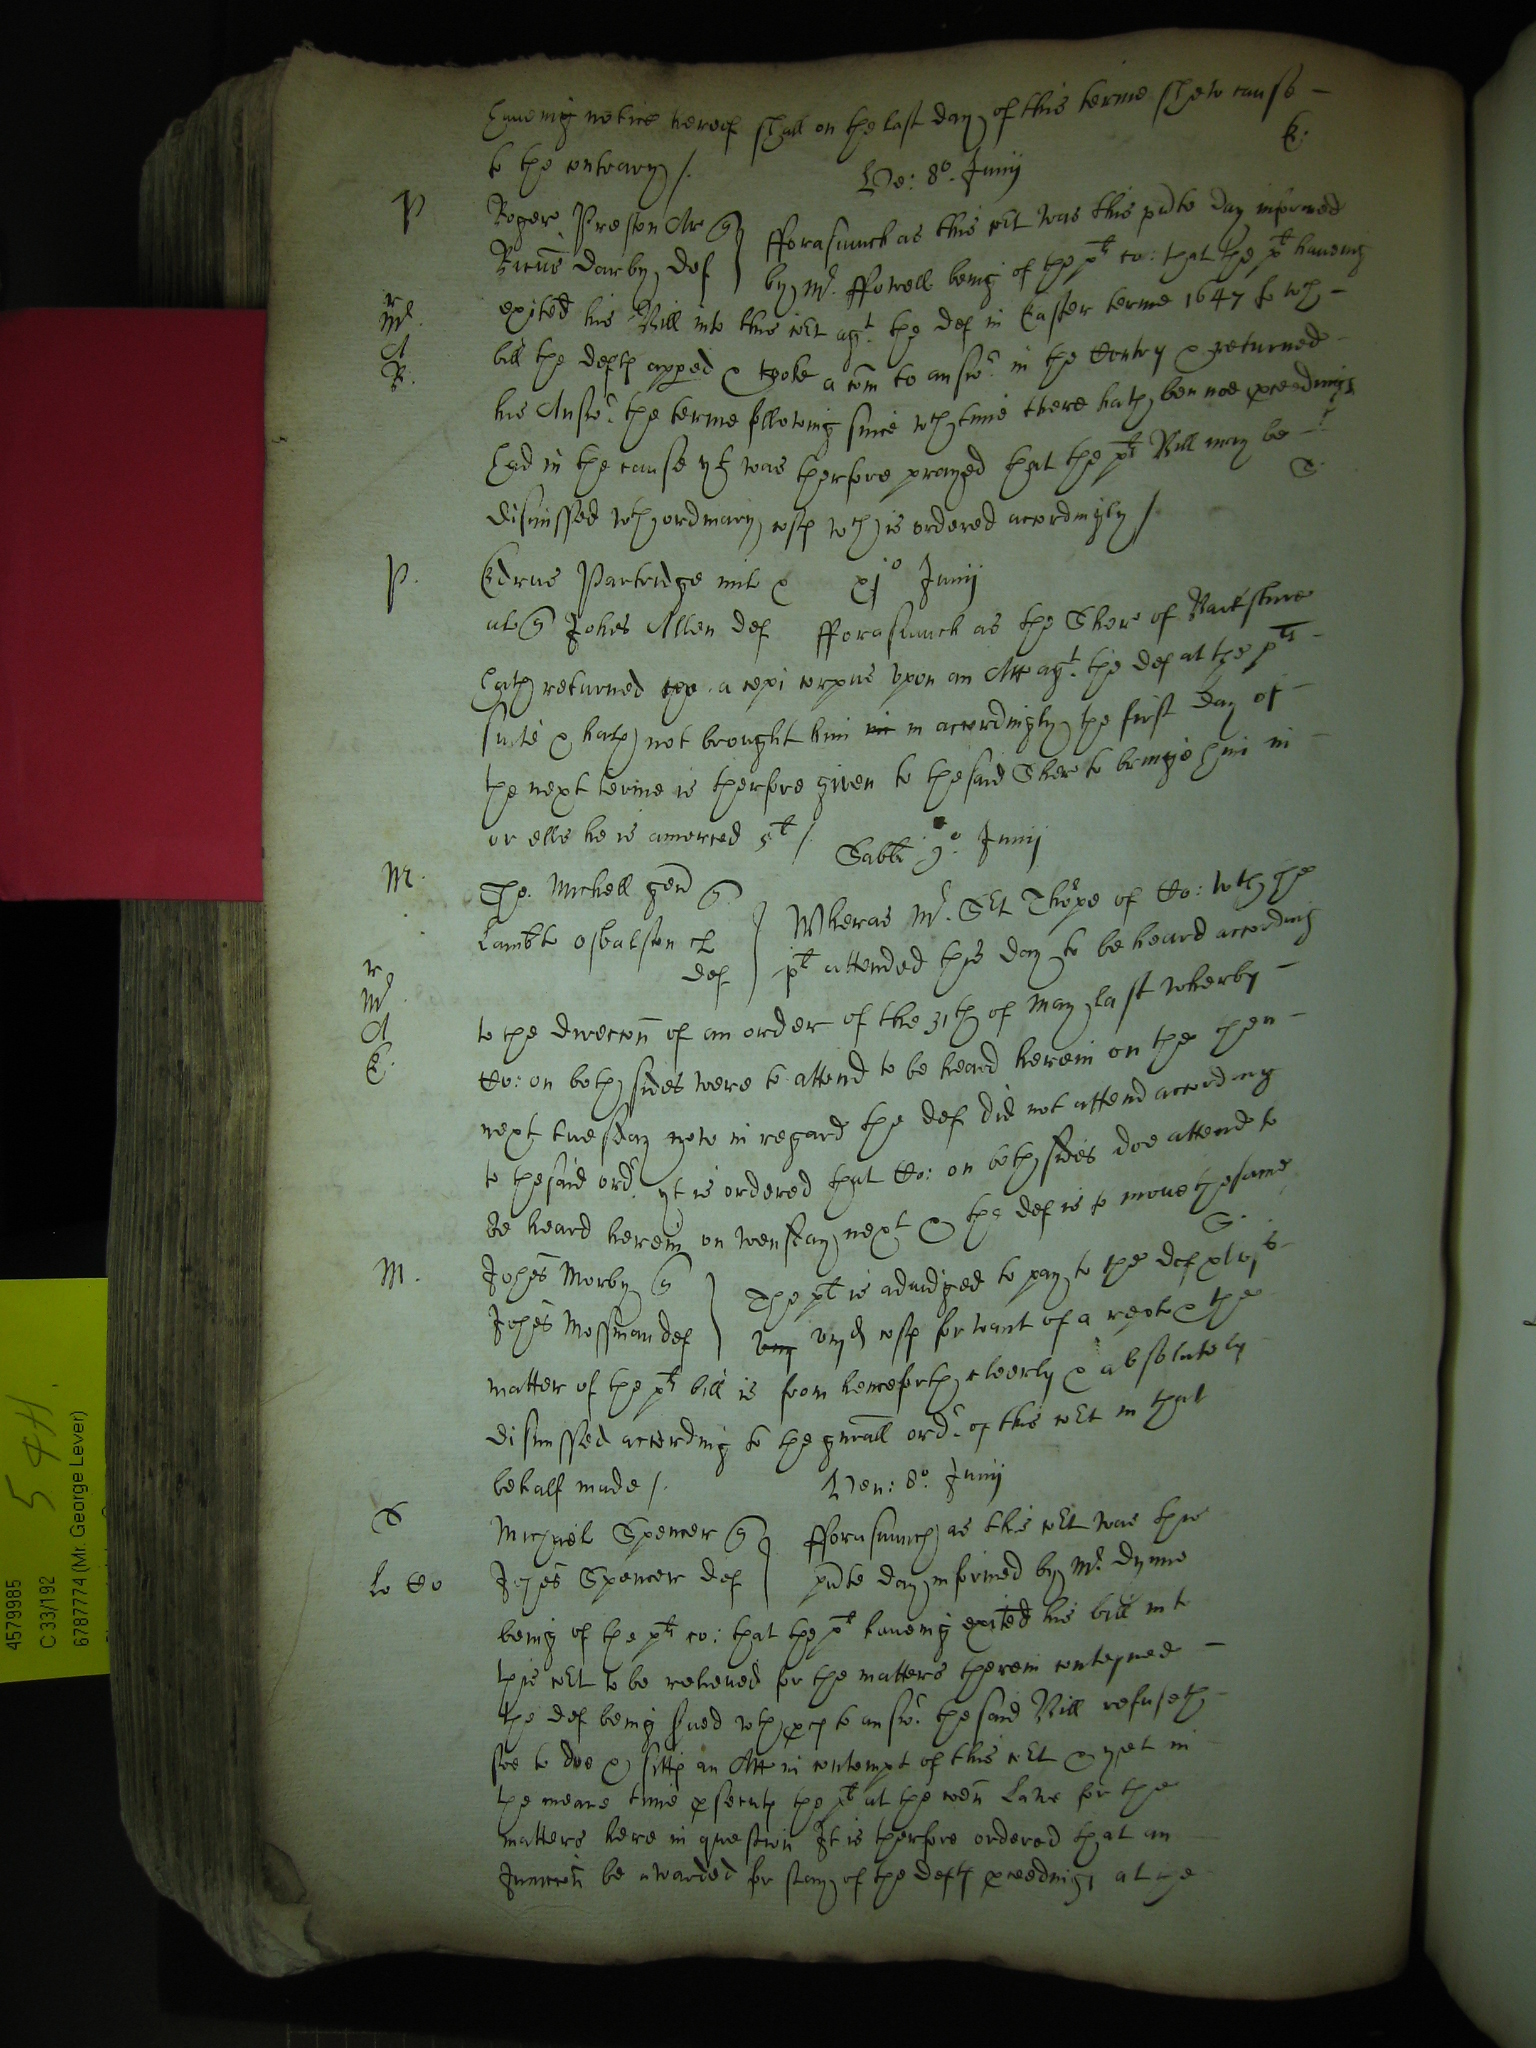 haueing notice hereof shall on the last day of this terme shew cause
to the contrary /. E:
Ve: 8o. Junij
P Roger Preston Ar q
Ricus Darby def
fforasmuch as this cot was this pnte day informed
by Mr. ffowell being of the plts co: that the plt haueing
exited his Bill into this cot agt. the def in Easter terme 1647 to wch
bill the defts apped & tooke a com to answr. in the Contry & returned
his Answr. the terme following since wch time there hath ben noe pceedings
had in the cause yt was therfore prayed that the plts Bill may be
dismissed wth ordinary costs wch is ordered accordingly /
r
Mr.
A
R.
S
P. Edrus Partridge mil &
xjo Junij
al q Johes Allen def fforasmuch as the Sher of Barkshire
hath returned a cepi corpus vpon an Att agt. the def at the plts
suite & hath not brought him in accordingly the first day of
the next terme is therfore given to the said Sher to bringe him in
or ells he is amerced 5l /.
Sabbi 9o. Junij
M. Tho. Michell gen q
Lambto Osbalston cl
def
Wheras Mr. Sct Thorpe of Co: wth the
plt attended this day to be heard according
to the direccon of an order of the 31th of May last wherby
Co: on both sides were to attend to be heard herein on the then
next tuesday now in regard the def did not attend according
to the said ordr. yt is ordered that Co: on both sides doe attend to
be heard herein on wensday next & the def is to moue the same
r
Mr.
A
E.
S.
M. Johes Morby q
Johes Mossman def
The plt is adiudged to pay to the def xlvjs
viijd costs for want of a repl & the
matter of the plts bill is from henceforth cleerly & absolutely
dismissed according to the gnrall ordr. of this cot in that
behalf made /.
Ven: 8o. Junij
S Michael Spencer q
Johes Spencer def
Lo Co
fforasmuch as this cot was this
pnte day informed by Mr. Dynne
being of the plts co: that the plt haueing exited his bill into
this cot to be releued for the matters therein conteyned
the def being sued wth pces to answr. the said Bill refuseth
soe to doe & sitts an Att in contempt of this cot & yet in
the meane time psecuts the plt at the coen Lawe for the
matters here in question It is therfore ordered that an
Iniunccon be awarded for stay of the defts pceedings at the
4579985
C 33/192
6787774 (Mr. George Lever)